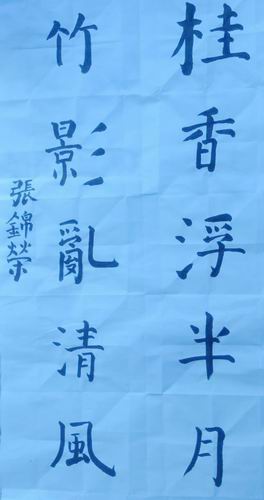 桂香浮半月
竹影亂清風
張錦榮